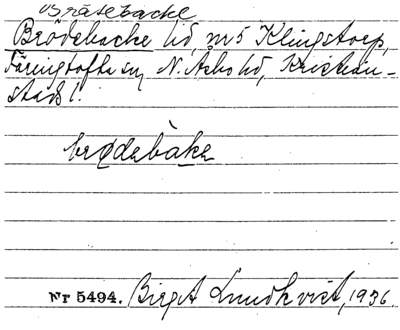 Bråtebacke
Brödebacke lid, nr 5 Klingstorp,
Färingtofta sn, N. Åsbo hd, Kristian-
stads l.
brødebàke
Nr 5494. Birgit Lundkvist, 1936.